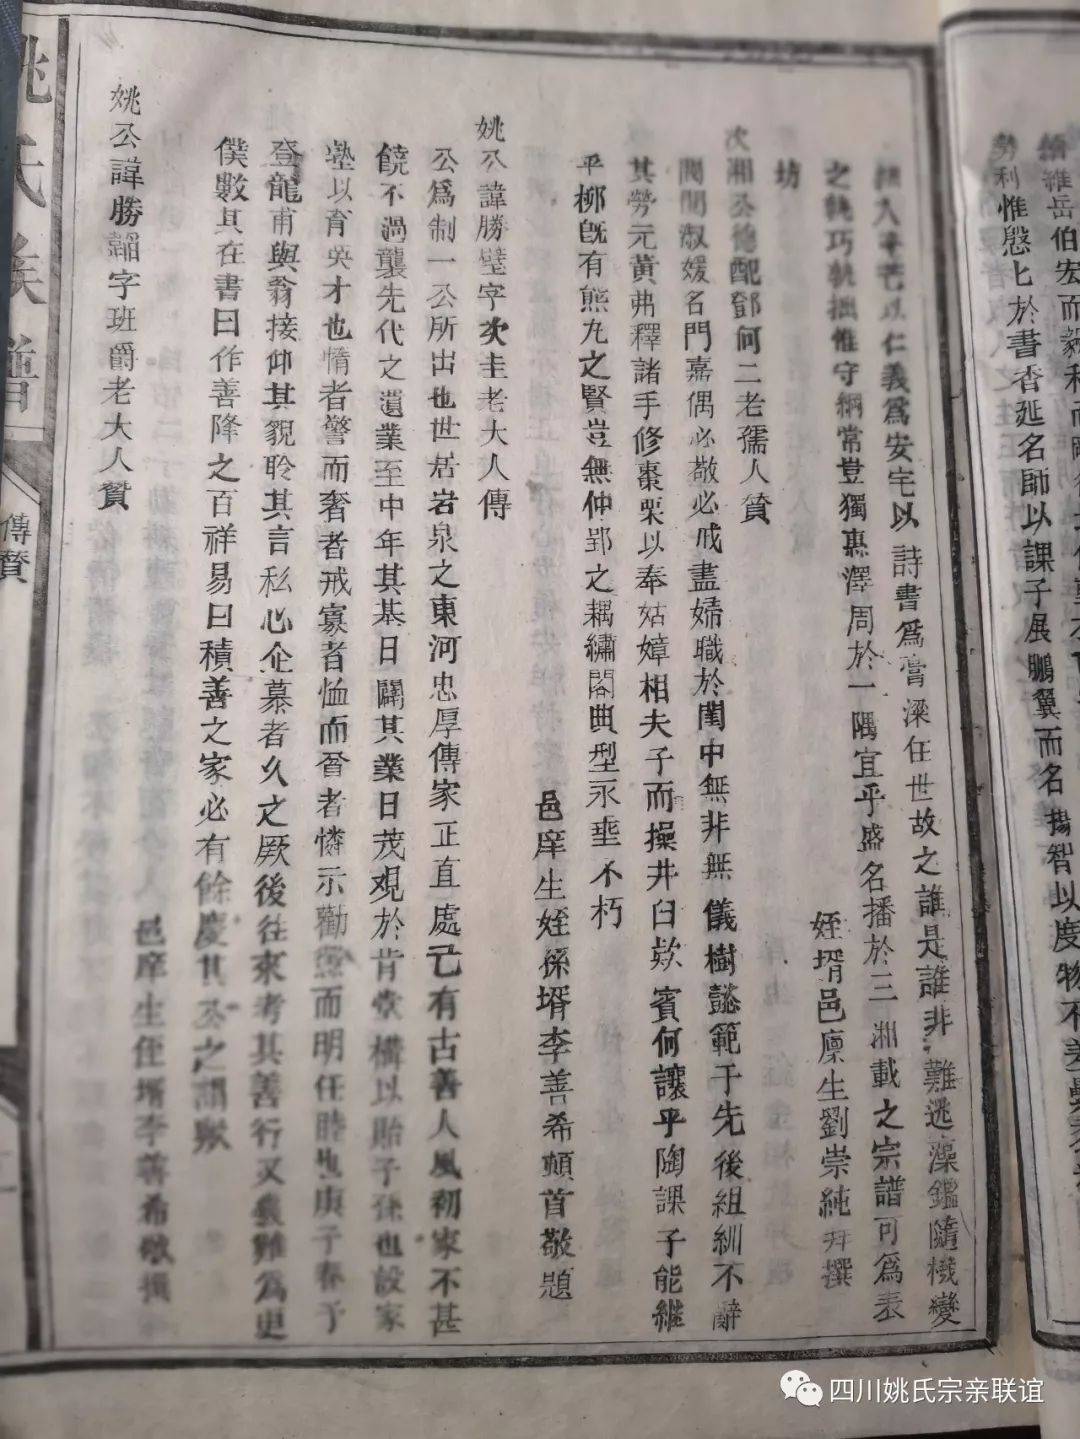 繪維岳伯宏而毅和而
勢利惟慇匕於書香延名師以課子展鵬翼而名揚智以度物不差
以仁義爲安宅以詩書爲膏梁任世故之誰是誰非難逃藻鑑隨機變
之孰巧孰拙惟守綱常豈獨惠澤周於一隅宜乎盛名播於三湘載之宗譜可爲表
坊
姪壻邑廩生劉崇純拜撰
次湘公德配鄧何二老孺人贊
閥閱淑媛名門嘉偶必敬必戒盡婦職於閨中無非無儀樹懿範于先後組紃不辭
其勞元黃弗釋諸手修棗栗以奉姑嫜相夫子而操井臼欵賓何讓乎陶課子能繼
乎柳旣有熊丸之賢豈無仲郢之耦繡閣典型永垂不朽
邑庠生姪孫壻李善希頓首敬題
姚公諱勝璧字次圭老大人傳
公爲制一公所出也世居岩泉之東河忠厚傳家正直處己有古善人風初家不甚
饒不過襲先代之遺業至中年其基日闢其業日茂覌於肯堂構以貽子孫也設家
塾以育英才也惰者警而奢者戒寡者恤而窘者憐示勸懲而明任睦也庚子春予
登龍甫與翁接仰其貌聆其言私心企慕者久之厥後往來考其善行又爽難爲更
僕數其在書曰作善降之百祥易曰積善之家必有餘慶其公之謂歟
邑庠生侄壻李善希敬撰
姚公諱勝韶字班爵老大人贊
姚氏族譜
傳贊
四川姚氏宗亲联谊